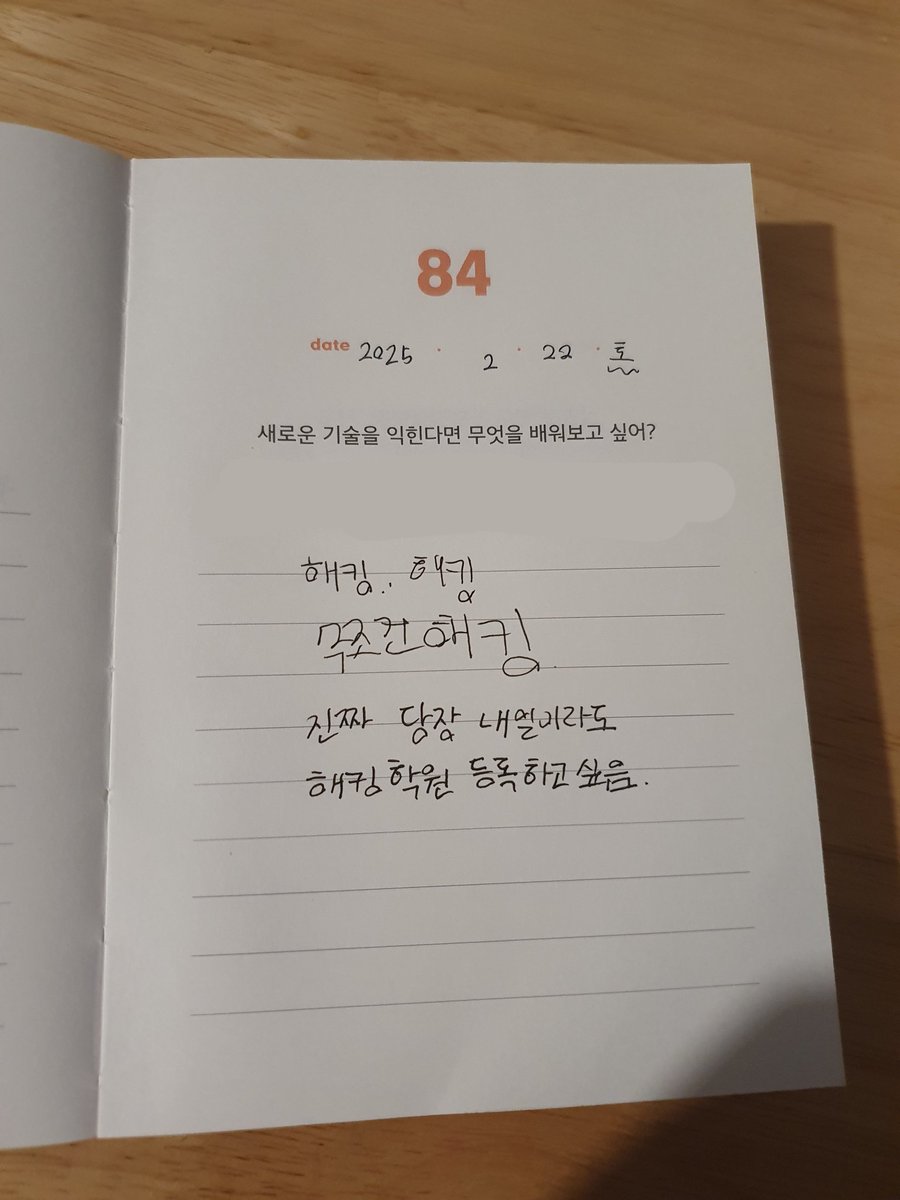 84
date 2025 · 2 · 22 · 토
새로운 기술을 익힌다면 무엇을 배워보고 싶어?
해킹.. 해킹
무조건 해킹.
진짜 당장 내일이라도
해킹학원 등록하고싶음.